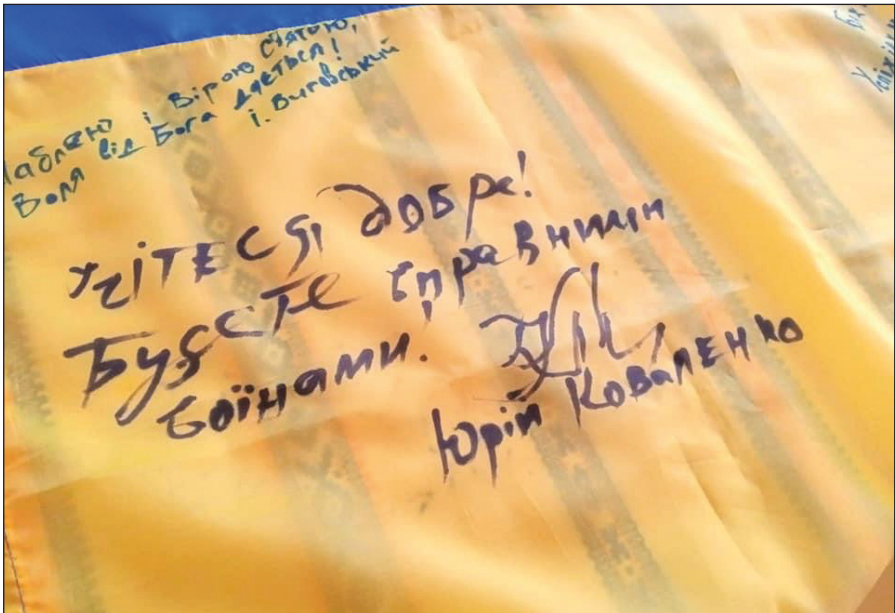 Шаблею і Вірою святою,
Воля від Бога дається!
І. Виговський
Учітеся добре!
Будете справними
воїнами!
Юрій Коваленко